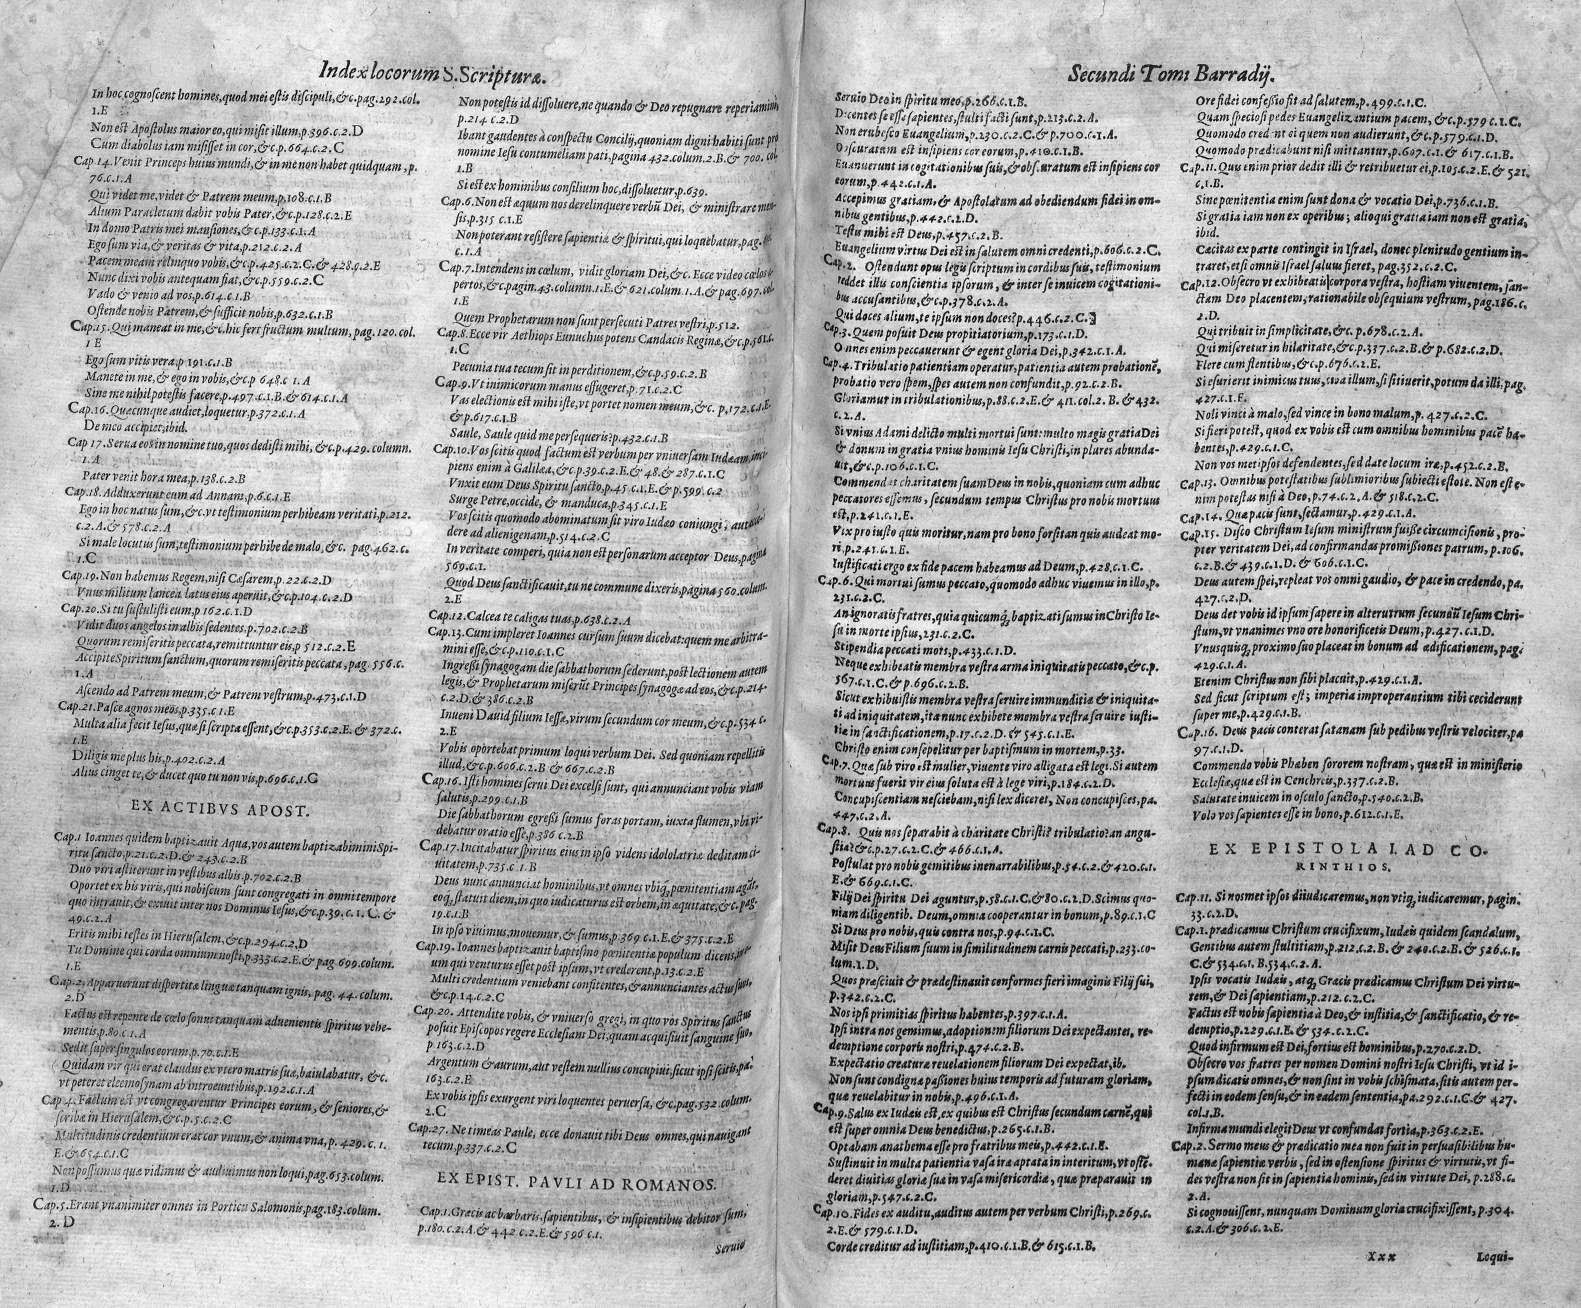 Index locorum S. Scripturæ.
In hoc cognoscent homines, quod mei estis discipuli, &c. pag. 292. col.
1. E
Non est Apostolus maior eo, qui misit illum, p. 396. c. 2. D
Cum diabolus iam misisset in cor, &c. p. 664. c. 2. C
Cap. 14. Venit Princeps huius mundi, & in me non habet quidquam, p.
76. c. 1. A
Qui videt me, videt & Patrem meum, p. 108. c. 1. B
Alium Paracletum dabit vobis Pater, &c. p. 128. c. 2. E
In domo Patris mei mansiones, &c. p. 133. c. 1. A
Ego sum via, & veritas & vita, p. 212. c. 2. A
Pacem meam relinquo vobis, &c. p. 425. c. 2. C. & 428. 9. 2. E
Nunc dixi vobis antequam fiat, &c. p. 559. c. 2. C
Vado & venio ad vos, p. 614. c. 1. B
Ostende nobis Patrem, & sufficit nobis, p. 632. c. 1. B
Cap. 15. Qui maneat in me, &c. hic fert fructum multum, pag. 120. col.
1 E
Ego sum vitis vera, p 191. c. 1. B
Manete in me, & ego in vobis, &c. p 648. c 1. A
Sine me nihil potestis facere, p. 497. c. 1. B. & 614. c. 1. A
Cap. 16. Quæcunque audiet, loquetur, p. 372. c. 1. A
De meo accipiet; ibid.
Cap 17. Serua eos in nomine tuo, quos dedisti mihi, &c. p. 429. column.
1. A
Pater venit hora mea, p. 138. c. 2. B
Cap. 18. Adduxerunt eum ad Annam, p. 6. c. 1. E
Ego in hoc natus sum, &c. vt testimonium perhibeam veritati, p. 212.
c. 2. A. & 578. c. 2. A
Si male locutus sum, testimonium perhibe de malo, &c. pag. 462. c.
1. C
Cap. 19. Non habemus Regem, nisi Cæsarem, p. 22. c. 2. D
Vnus militum lancea latus eius aperuit, &c. p. 104. c. 2. D
Cap. 20. Si tu sustulisti eum, p 162. c. 1. D
Vidit duos angelos in albis sedentes, p. 702. c. 2. B
Quorum remiseritis peccata, remittuntur eis, p 512. c. 2. E
Accipite Spiritum sanctum, quorum remiseritis peccata, pag. 556. c.
1. A
Ascendo ad Patrem meum, & Patrem vestrum, p. 473. c. 1. D
Cap. 21. Pasce agnos meos, p. 335. c. 1. E
Multa alia fecit Iesus, quæ si scripta essent, &c. p. 353. c. 2. E. & 372. c.
1. E
Diligis me plus his, p. 402. c. 2. A
Alius cinget te, & ducet quo tu non vis, p. 696. c. 1. C
EX ACTIBVS APOST.
Cap. 1 Ioannes quidem baptizauit Aqua, vos autem baptizabimini Spi-
ritu sancto, p. 21. c. 2. D. & 243. c. 2. B
Duo viri astiterunt in vestibus albis. p. 702. c. 2. B
Oportet ex his viris, qui nobiscum sunt congregati in omni tempore
quo intrauit, & exiuit inter nos Dominus Iesus, &c. p. 39. c. 1. C. &
49. c. 2. A
Eritis mihi testes in Hierusalem, &c. p. 294. c. 2. D
Tu Domine qui corda omnium nosti, p. 333. c. 2. E. & pag 699. colum.
1. E
Cap. 2. Apparuerunt dispertitæ linguæ tanquam ignis, pag. 44. colum.
2. D
Factus est repente de cœlo sonus tanquam aduenientis spiritus vehe-
mentis, p. 80. c. 1. A
Sedit super singulos eorum, p. 70. c. 1. E
Quidam vir qui erat claudus ex vtero matris suæ, baiulabatur, &c.
vt peteret eleemosynam ab introeuntibus, p. 192. c. 1. A
Cap 4. Factum est vt congregarentur Principes eorum, & seniores, &
scribæ in Hierusalem, &c. p. 5. c. 2. C
Multitudinis credentium erat cor vnum, & anima vna, p. 429. c. 1.
E. & 654. c. 1. C
Non possumus quæ vidimus & audiuimus non loqui, pag. 653. colum.
1. D
Cap. 5. Erant vnanimiter omnes in Porticu Salomonis, pag. 183. colum.
2. D
Non potestis id dissoluere, ne quando & Deo repugnare reperiamini,
p. 214. c. 2. D
Ibant gaudentes à conspectu Concilij, quoniam digni habiti sunt pro
nomine Iesu contumeliam pati, pagina 432. colum. 2. B. & 700. col.
1. B
Si est ex hominibus consilium hoc, dissoluetur, p. 639.
Cap. 6. Non est æquum nos derelinquere verbũ Dei, & ministrare men-
sis, p. 315 c. 1. E
Non poterant resistere sapientiæ & spiritui, qui loquebatur, pag.
c. 1. A
Cap. 7. Intendens in cœlum, vidit gloriam Dei, &c. Ecce video cœlos a-
pertos, &c. pagin. 43. column. 1. E. & 621. colum. 1. A. & pag. 697. col.
1. E
Quem Prophetarum non sunt persecuti Patres vestri, p. 512.
Cap. 8. Ecce vir Aethiops Eunuchus potens Candacis Reginæ, &c. p. 561. c.
1. C
Pecunia tua tecum sit in perditionem, &c. p. 59. c. 2. B
Cap. 9. Vt inimicorum manus effugeret, p. 71. c. 2. C
Vas electionis est mihi iste, vt portet nomen meum, &c. p, 172. c. 1. E.
& p. 617. c. 1. B
Saule, Saule quid me persequeris? p. 432. c. 1. B
Cap. 10. Vos scitis quod factum est verbum per vniuersam Iudæam, inci-
piens enim à Galilæa, &c. p. 39. c. 2. E. & 48. & 287. c. 1. C
Vnxit eum Deus Spiritu sancto, p. 45 c. 1. E. & p. 599. c. 2
Surge Petre, occide, & manduca, p. 345. c. 1. E
Vos scitis quomodo abominatum sit viro Iudæo coniungi, aut acce-
dere ad alienigenam, p. 514. c. 2. C
In veritate comperi, quia non est personarum acceptor Deus, pagina
569. c. 1.
Quod Deus sanctificauit, tu ne commune dixeris, pagina 560. colum.
2. E
Cap. 12. Calcea te caligas tuas, p. 638. c. 2. A
Cap. 13. Cum impleret Ioannes cursum suum dicebat: quem me arbitra-
mini esse, &c. p. 110. c. 1. C
Ingressi synagogam die sabbathorum sederunt, post lectionem autem
legis, & Prophetarum miserũt Principes synagogæ ad eos, &c. p. 214.
c. 2. D. & 386. c. 2. B
Inueni Dauid filium Iesse, virum secundum cor meum, &c. p. 534 c.
2. E
Vobis oportebat primum loqui verbum Dei. Sed quoniam repellitis
illud, &c. p. 606. c. 2. B & 667. c. 2. B
Cap. 16. Isti homines serui Dei excelsi sunt, qui annunciant vobis viam
salutis, p. 299. c. 1. B
Die sabbathorum egressi sumus foras portam, iuxta flumen, vbi vi-
debatur oratio esse, p. 386 c. 2. B
Cap. 17. Incitabatur spiritus eius in ipso videns idololatriæ deditam ci-
uitatem, p. 735. c 1. B
Deus nunc annunciat hominibus, vt omnes vbiq; pœnitentiam agãt,
eoq; statuit diem, in quo iudicaturus est orbem, in æquitate, &c. pag.
19. c. 1. B
In ipso viuimus, mouemur, & sumus, p. 369 c. 1. E. & 375. c. 2. E
Cap. 19. Ioannes baptizauit baptismo pœnitentiæ populum dicens, in e-
um qui venturus esset post ipsum, vt crederent, p. 13. c. 2. E
Multi credentium veniebant confitentes, & annunciantes actus suos,
&c. p. 14. c. 2. C
Cap. 20. Attendite vobis, & vniuerso gregi, in quo vos Spiritus sanctus
posuit Episcopos regere Ecclesiam Dei, quam acquisiuit sanguine suo,
p 163. c. 2. D
Argentum & aurum, aut vestem nullius concupiui, sicut ipsi scitis, pa.
163. c. 2. E
Ex vobis ipsis exurgent viri loquentes peruersa, &c. pag. 532. colum.
2. C
Cap. 27. Ne timeas Paule, ecce donauit tibi Deus omnes, qui nauigant
tecum, p. 337. c. 2. C
EX EPIST. PAVLI AD ROMANOS.
Cap. 1. Græcis ac barbaris, sapientibus, & insipientibus debitor sum,
p. 180. c. 2. A & 442 c. 2. E. & 596 c. 1.
Seruio
Secundi Tomi Barradij.
Seruio Deo in spiritu meo, p. 266. c. 1. B.
Dicentes se esse sapientes, stulti facti sunt, p. 213. c. 2. A.
Non erubesco Euangelium, p. 230. c. 2. C. & p. 700. c. 1. A.
Obscuratum est insipiens cor eorum, p. 410. c. 1. B.
Euanuerunt in cogitationibus suis, & obscuratum est insipiens cor
eorum, p. 442. c. 1. A.
Accepimus gratiam, & Apostolatum ad obediendum fidei in om-
nibus gentibus, p. 442. c. 2. D.
Testis mihi est Deus, p. 457. c. 2. B.
Euangelium virtus Dei est in salutem omni credenti, p. 606. c. 2. C.
Cap. 2. Ostendunt opus legis scriptum in cordibus suis, testimonium
reddet illis conscientia ipsorum, & inter se inuicem cogitationi-
bus accusantibus, &c. p. 378. c. 2. A.
Qui doces alium, te ipsum non doces? p. 446. c. 2. C.
Cap. 3. Quem posuit Deus propitiatorium, p. 173. c. 1. D.
Omnes enim peccauerunt & egent gloria Dei, p. 342. c. 1. A.
Cap. 4. Tribulatio patientiam operatur, patientia autem probationẽ,
probatio vero spem, spes autem non confundit, p. 92. c. 2. B.
Gloriamur in tribulationibus, p. 88. c. 2. E. & 411. col. 2. B. & 432.
c. 2. A.
Si vnius Adami delicto multi mortui sunt: multo magis gratia Dei
& donum in gratia vnius hominis Iesu Christi, in plures abunda-
uit, &c. p. 106. c. 1. C.
Commendat charitatem suam Deus in nobis, quoniam cum adhuc
peccatores essemus, secundum tempus Christus pro nobis mortuus
est, p. 241. c. 1. E.
Vix pro iusto quis moritur, nam pro bono forsitan quis audeat mo-
ri, p. 241. c. 1. E.
Iustificati ergo ex fide pacem habeamus ad Deum, p. 428. c. 1. C.
Cap. 6. Qui mortui sumus peccato, quomodo adhuc viuemus in illo, p.
231. c. 2. C.
An ignoratis fratres, quia quicumq; baptizati sumus in Christo Ie-
su in morte ipsius, 231. c. 2. C.
Stipendia peccati mors, p. 433. c. 1. D.
Neque exhibeatis membra vestra arma iniquitatis peccato, &c. p.
567. c. 1. C. & p. 696. c. 2. B.
Sicut exhibuistis membra vestra seruire immunditiæ & iniquita-
ti ad iniquitatem, ita nunc exhibete membra vestra seruire iusti-
tiæ in sanctificationem, p. 17. c. 2. D. & 545. c. 1. E.
Christo enim consepelitur per baptismum in mortem, p. 33.
Cap. 7. Quæ sub viro est mulier, viuente viro alligata est legi. Si autem
mortuus fuerit vir eius soluta est à lege viri, p. 184. c. 2. D.
Concupiscentiam nesciebam, nisi lex diceret, Non concupisces, pa.
447. c. 2. A.
Cap. 8. Quis nos separabit à charitate Christi? tribulatio? an angu-
stia? &c. p. 27. c. 2. C. & 466. c. 1. A.
Postulat pro nobis gemitibus inenarrabilibus, p. 54. c. 2. & 420. c. 1.
E. & 669. c. 1. C.
Filij Dei spiritu Dei aguntur, p. 58. c. 1. C. & 80. c. 2. D. Scimus quo-
niam diligentib. Deum, omnia cooperantur in bonum, p. 89. c. 1. C
Si Deus pro nobis, quis contra nos, p. 94. c. 1. C.
Misit Deus Filium suum in similitudinem carnis peccati, p. 233. co-
lum. 1. D.
Quos præsciuit & prædestinauit conformes fieri imaginis Filij sui,
p. 342. c. 2. C.
Nos ipsi primitias spiritus habentes, p. 397. c. 1. A.
Ipsi intra nos gemimus, adoptionem filiorum Dei expectantes, re-
demptione corporis nostri, p. 474. c. 2. B.
Expectatio creaturæ reuelationem filiorum Dei expectat, ib.
Non sunt condignæ passiones huius temporis ad futuram gloriam,
quæ reuelabitur in nobis, p. 496. c. 1. A.
Cap. 9. Salus ex Iudæis est, ex quibus est Christus secundum carnẽ, qui
est super omnia Deus benedictus, p. 265. c. 1. B.
Optabam anathema esse pro fratribus meis, p. 442. c. 1. E.
Sustinuit in multa patientia vasa iræ aptata in interitum, vt ostẽ-
deret diuitias gloriæ suæ in vasa misericordiæ, quæ præparauit in
gloriam, p. 547. c. 2. C.
Cap. 10. Fides ex auditu, auditus autem per verbum Christi, p. 269. c.
2. E. & 579. c. 1. D.
Corde creditur ad iustitiam, p. 410. c. 1. B. & 615. c. 1. B.
Ore fidei confessio fit ad salutem, p. 499. c. 1. C.
Quam speciosi pedes Euangelizantium pacem, &c. p. 579 c. 1. C.
Quomodo credent ei quem non audierunt, &c. p. 579. c. 1. D.
Quomodo prædicabunt nisi mittantur, p. 607. c. 1. & 617. c. 1. B.
Cap. 11. Quis enim prior dedit illi & retribuetur ei, p. 105. c. 2. E. & 521.
c. 1. B.
Sine pœnitentia enim sunt dona & vocatio Dei, p. 736. c. 1. B.
Si gratia iam non ex operibus; alioqui gratia iam non est gratia,
ibid.
Cæcitas ex parte contingit in Israel, donec plenitudo gentium in-
traret, et si omnis Israel saluus fieret, pag. 352. c. 2. C.
Cap. 12. Obsecro vt exhibeatis corpora vestra, hostiam viuentem, san-
ctam Deo placentem, rationabile obsequium vestrum, pag. 186. c.
2. D.
Qui tribuit in simplicitate, &c. p. 678. c. 2. A.
Qui miseretur in hilaritate, &c. p. 337. c. 2. B. & p. 682. c. 2. D.
Flere cum flentibus, &c. p. 676. c. 2. E.
Si esurierit inimicus tuus, ciba illum, si sitiuerit, potum da illi, pag.
427. c. 1. E.
Noli vinci à malo, sed vince in bono malum, p. 427. c. 2. C.
Si fieri potest, quod ex vobis est cum omnibus hominibus pacẽ ha-
bentes, p. 429. c. 1. C.
Non vos metipsos defendentes, sed date locum iræ, p. 452. c. 2. B.
Cap. 13. Omnibus potestatibus sublimioribus subiecti estote. Non est e-
nim potestas nisi à Deo, p. 74. c. 2. A. & 518. c. 2. C.
Cap. 14. Quæ pacis sunt, sectamur, p. 429. c. 1. A.
Cap. 15. Dico Christum Iesum ministrum fuisse circumcisionis, pro-
pter veritatem Dei, ad confirmandas promissiones patrum, p. 106.
c. 2. B. & 439. c. 1. D. & 606. c. 1. C.
Deus autem spei, repleat vos omni gaudio, & pace in credendo, pa.
427. c. 2. D.
Deus det vobis id ipsum sapere in alterutrum secundũ Iesum Chri-
stum, vt vnanimes vno ore honorificetis Deum, p. 427. c. 1. D.
Vnusquisq; proximo suo placeat in bonum ad ædificationem, pag.
429. c. 1. A.
Etenim Christus non sibi placuit, p. 429. c. 1. A.
Sed sicut scriptum est; imperia improperantium tibi ceciderunt
super me, p. 429. c. 1. B.
Cap. 16. Deus pacis conterat satanam sub pedibus vestris velociter, pa
97. c. 1. D.
Commendo vobis Phæben sororem nostram, quæ est in ministerio
Ecclesiæ, quæ est in Cenchreis, p. 337. c. 2. B.
Salutate inuicem in osculo sancto, p. 540. c. 2. B.
Volo vos sapientes esse in bono, p. 612. c. 1. E.
EX EPISTOLA I. AD CO-
RINTHIOS.
Cap. 11. Si nosmet ipsos diiudicaremus, non vtiq; iudicaremur, pagin.
33. c. 2. D.
Cap. 1. prædicamus Christum crucifixum, Iudæis quidem scandalum,
Gentibus autem stultitiam, p. 212. c. 2. B. & 240. c. 2. B. & 526. c. 1.
C. & 534. c. 1. B. 534. c. 2. A.
Ipsis vocatis Iudæis, atq; Græcis prædicamus Christum Dei virtu-
tem, & Dei sapientiam, p. 212. c. 2. C.
Factus est nobis sapientia à Deo, & iustitia, & sanctificatio, & re-
demptio, p. 229. c. 1. E. & 534. c. 2. C.
Quod infirmum est Dei, fortius est hominibus, p. 270. c. 2. D.
Obsecro vos fratres per nomen Domini nostri Iesu Christi, vt id i-
psum dicatis omnes, & non sint in vobis schismata, sitis autem per-
fecti in eodem sensu, & in eadem sententia, pa. 292. c. 1. C. & 427.
col. 1. B.
Infirma mundi elegit Deus vt confundat fortia, p. 363. c. 2. E.
Cap. 2. Sermo meus & prædicatio mea non fuit in persuasibilibus hu-
manæ sapientiæ verbis, sed in ostensione spiritus & virtutis, vt fi-
des vestra non sit in sapientia hominis, sed in virtute Dei, p. 288. c.
2. A.
Si cognouissent, nunquam Dominum gloriæ crucifixissent, p. 304.
c. 2. A. & 306. c. 2. E.
Xxx
Loqui-